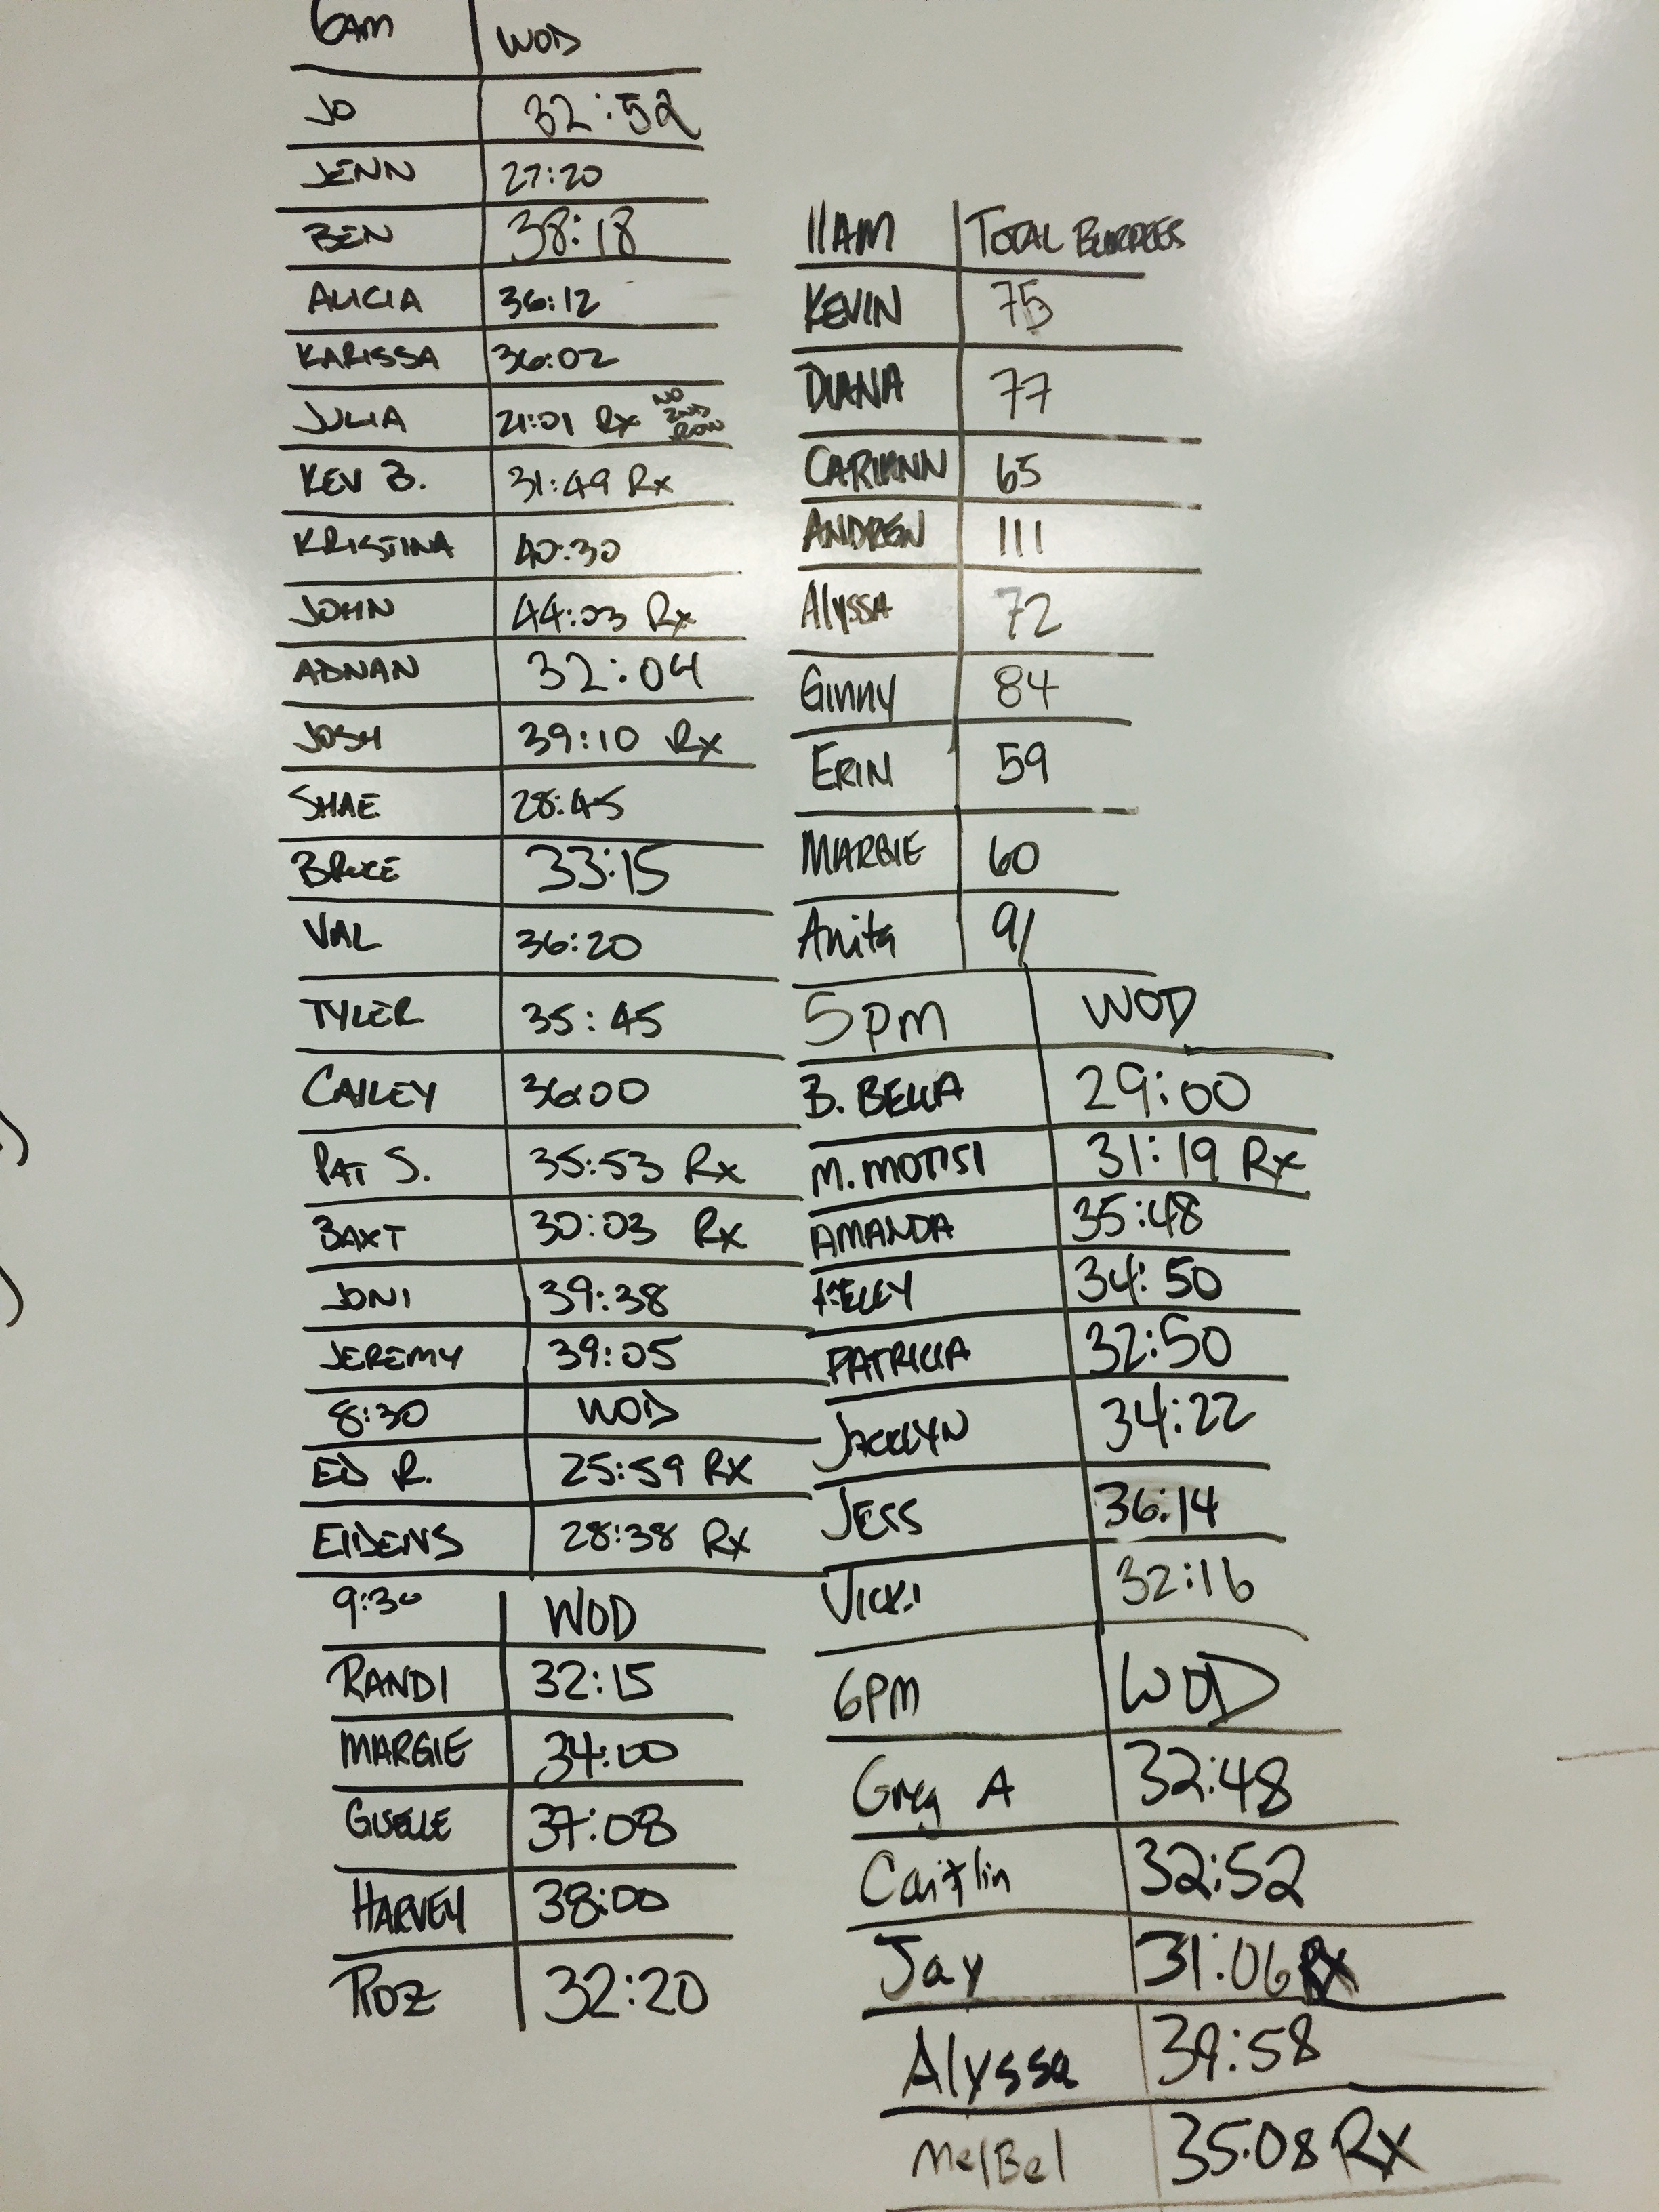 6AM WOD
JO 32:52
JENN 27:20
BEN 38:18
ALICIA 36:12
KARISSA 36:02
JULIA 21:01 Rx NO 2ND ROW
KEV B. 31:49 Rx
KRISTINA 40:30
JOHN 44:03 Rx
ADNAN 32:04
JOSH 39:10 Rx
SHAE 28:45
BRUCE 33:15
VAL 36:20
TYLER 35:45
CAILEY 36:00
PAT S. 35:53 Rx
BAXT 30:03 Rx
JONI 39:38
JEREMY 39:05
8:30 WOD
ED R. 25:59 RX
EIDENS 28:38 Rx
9:30 WOD
RANDI 32:15
MARGIE 34:00
GISELLE 37:08
HARVEY 38:00
ROZ 32:20
11AM TOTAL BURPEES
KEVIN 75
DIANA 77
CARIANN 65
ANDREW 111
Alyssa 72
Ginny 84
ERIN 59
MARBIE 60
Anita 91
5pm WOD
B. BELLA 29:00
M. MOTISI 31:19 Rx
AMANDA 35:48
KELLY 34:50
PATRICIA 32:50
JACKLYN 34:22
JESS 36:14
VICKI 32:16
6PM WOD
Greg A 32:48
Caitlin 32:52
Jay 31:06 RX
Alyssa 39:58
MelBel 35:08 RX